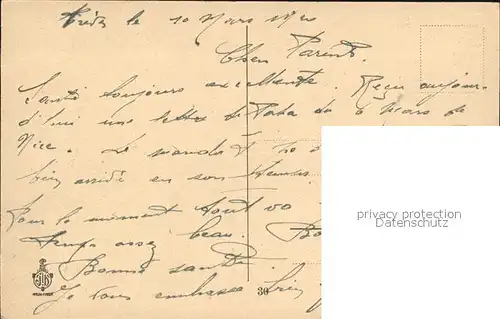 le 10 Mars 1920
Chers Parents.
Santé toujours excellente. Reçu aujour-
d'hui une lettre de Papa du 6 Mars de
Nice. Le mandat
bien arrivé en son temps
Pour le moment tout va
temps assez beau.
Bonne santé.
Je vous embrasse bien
30
privacy protection
watermark